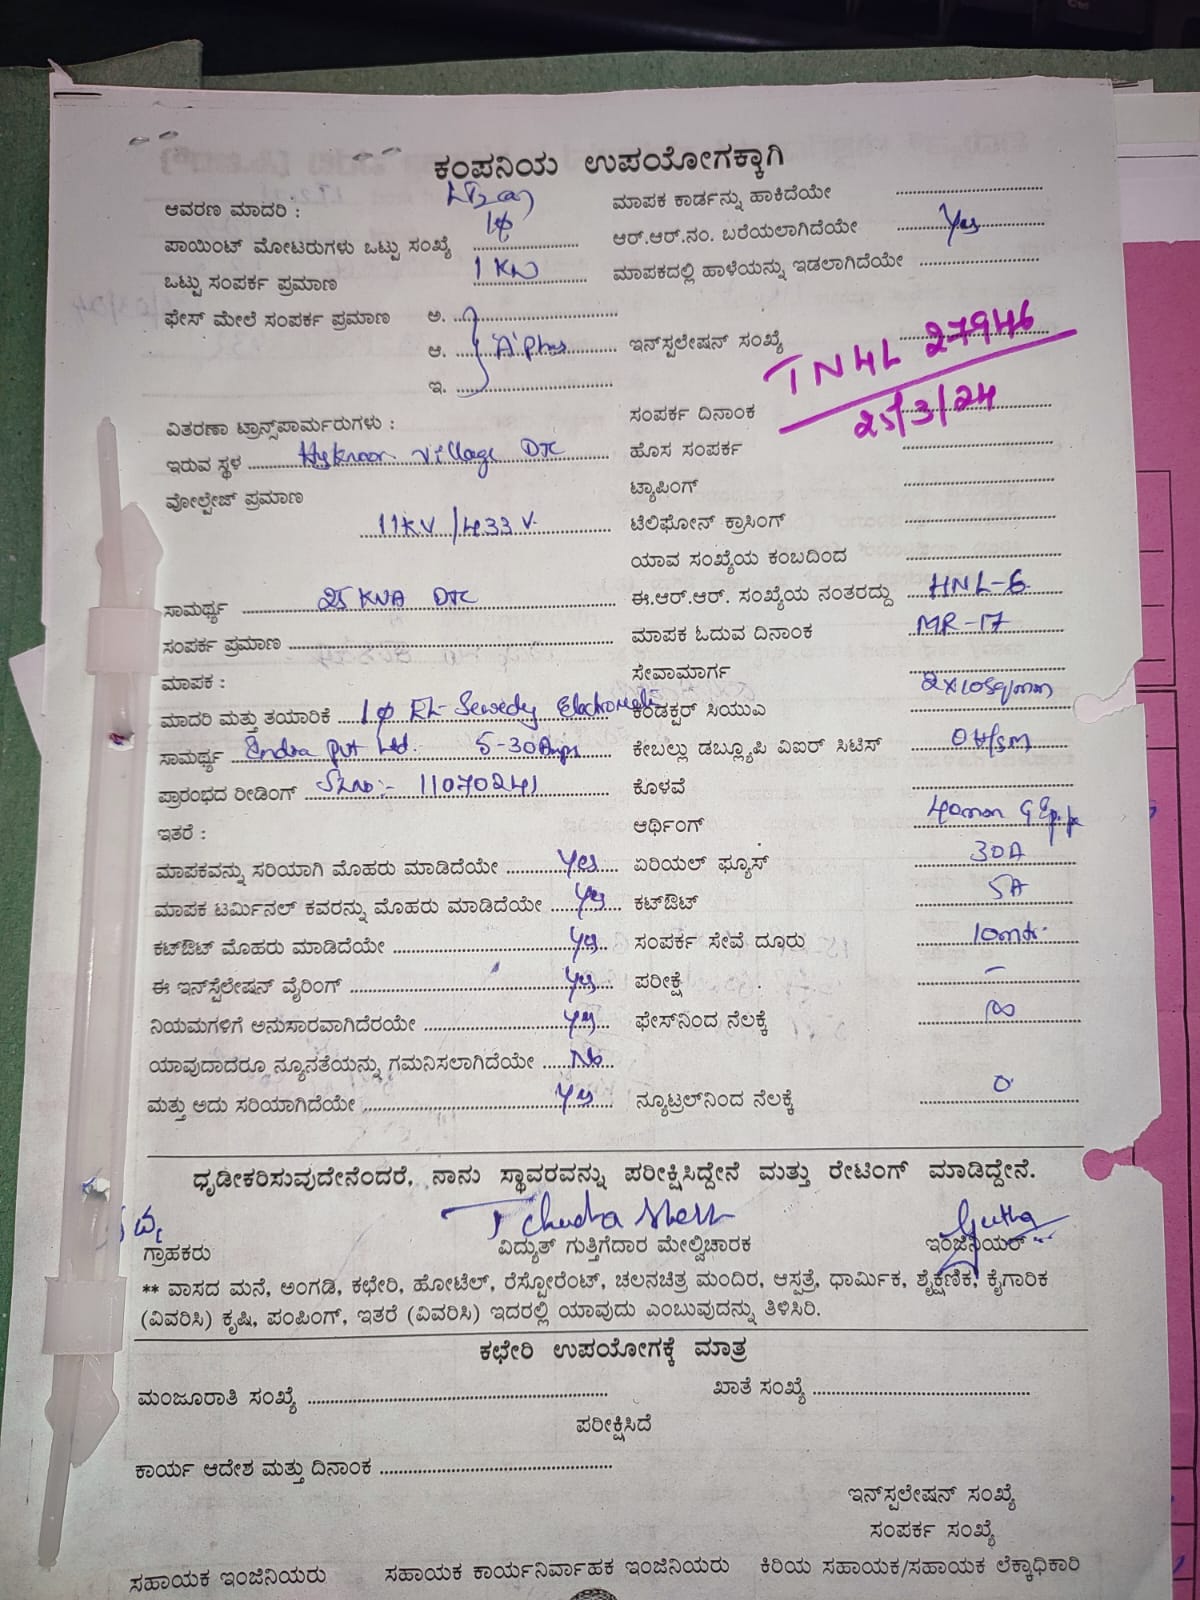 ಕಂಪನಿಯ ಉಪಯೋಗಕ್ಕಾಗಿ
ಆವರಣ ಮಾದರಿ : ಮಾಪಕ ಕಾರ್ಡನ್ನು ಹಾಕಿದೆಯೇ
ಪಾಯಿಂಟ್ ಮೋಟರುಗಳು ಒಟ್ಟು ಸಂಖ್ಯೆ 1φ ಆರ್.ಆರ್.ನಂ. ಬರೆಯಲಾಗಿದೆಯೇ Yes
ಒಟ್ಟು ಸಂಪರ್ಕ ಪ್ರಮಾಣ 1 KW ಮಾಪಕದಲ್ಲಿ ಹಾಳೆಯನ್ನು ಇಡಲಾಗಿದೆಯೇ
ಫೇಸ್ ಮೇಲೆ ಸಂಪರ್ಕ ಪ್ರಮಾಣ ಅ.
ಆ. 'A' ಇನ್‌ಸ್ಪಲೇಷನ್ ಸಂಖ್ಯೆ TNHL 27946
ಇ.
ಸಂಪರ್ಕ ದಿನಾಂಕ 25/3/24
ವಿತರಣಾ ಟ್ರಾನ್ಸ್‌ಪಾರ್ಮರುಗಳು :
ಇರುವ ಸ್ಥಳ Village DTC ಹೊಸ ಸಂಪರ್ಕ
ವೋಲ್ಟೇಜ್ ಪ್ರಮಾಣ ಟ್ಯಾಪಿಂಗ್
11KV/433 V. ಟೆಲಿಫೋನ್ ಕ್ರಾಸಿಂಗ್
ಯಾವ ಸಂಖ್ಯೆಯ ಕಂಬದಿಂದ
ಸಾಮರ್ಥ್ಯ 25 KVA DTC ಈ.ಆರ್.ಆರ್. ಸಂಖ್ಯೆಯ ನಂತರದ್ದು HNL-6
ಸಂಪರ್ಕ ಪ್ರಮಾಣ ಮಾಪಕ ಓದುವ ದಿನಾಂಕ MR-17
ಮಾಪಕ : ಸೇವಾಮಾರ್ಗ
ಮಾದರಿ ಮತ್ತು ತಯಾರಿಕೆ 1φ EL-Sewedy ಕಂಡಕ್ಟರ್ ಸಿಯುಎ 2x10sq/mm
ಸಾಮರ್ಥ್ಯ Pvt Ltd. 5-30Amps ಕೇಬಲ್ಲು ಡಬ್ಲ್ಯೂಪಿ ವಿಐರ್ ಸಿಟಿಸ್
ಪ್ರಾರಂಭದ ರೀಡಿಂಗ್ SLNo:- 11070241 ಕೊಳವೆ
ಇತರೆ : ಆರ್ಥಿಂಗ್ 40mm
ಮಾಪಕವನ್ನು ಸರಿಯಾಗಿ ಮೊಹರು ಮಾಡಿದೆಯೇ Yes ಏರಿಯಲ್ ಫ್ಯೂಸ್ 30A
ಮಾಪಕ ಟರ್ಮಿನಲ್ ಕವರನ್ನು ಮೊಹರು ಮಾಡಿದೆಯೇ Yes ಕಟ್‌ಔಟ್ 5A
ಕಟ್‌ಔಟ್ ಮೊಹರು ಮಾಡಿದೆಯೇ Yes ಸಂಪರ್ಕ ಸೇವೆ ದೂರು 10mtr.
ಈ ಇನ್‌ಸ್ಪೆಲೇಷನ್ ವೈರಿಂಗ್ Yes ಪರೀಕ್ಷೆ –
ನಿಯಮಗಳಿಗೆ ಅನುಸಾರವಾಗಿದೆರಯೇ Yes ಫೇಸ್‌ನಿಂದ ನೆಲಕ್ಕೆ ∞
ಯಾವುದಾದರೂ ನ್ಯೂನತೆಯನ್ನು ಗಮನಿಸಲಾಗಿದೆಯೇ No
ಮತ್ತು ಅದು ಸರಿಯಾಗಿದೆಯೇ Yes ನ್ಯೂಟ್ರಲ್‌ನಿಂದ ನೆಲಕ್ಕೆ 0
ಧೃಡೀಕರಿಸುವುದೇನೆಂದರೆ, ನಾನು ಸ್ಥಾವರವನ್ನು ಪರೀಕ್ಷಿಸಿದ್ದೇನೆ ಮತ್ತು ರೇಟಿಂಗ್ ಮಾಡಿದ್ದೇನೆ.
ಗ್ರಾಹಕರು ವಿದ್ಯುತ್ ಗುತ್ತಿಗೆದಾರ ಮೇಲ್ವಿಚಾರಕ ಇಂಜಿನಿಯರ್
** ವಾಸದ ಮನೆ, ಅಂಗಡಿ, ಕಛೇರಿ, ಹೋಟೆಲ್, ರೆಸ್ಟೋರೆಂಟ್, ಚಲನಚಿತ್ರ ಮಂದಿರ, ಆಸ್ಪತ್ರೆ, ಧಾರ್ಮಿಕ, ಶೈಕ್ಷಣಿಕ, ಕೈಗಾರಿಕ
(ವಿವರಿಸಿ) ಕೃಷಿ, ಪಂಪಿಂಗ್, ಇತರೆ (ವಿವರಿಸಿ) ಇದರಲ್ಲಿ ಯಾವುದು ಎಂಬುವುದನ್ನು ತಿಳಿಸಿರಿ.
ಕಛೇರಿ ಉಪಯೋಗಕ್ಕೆ ಮಾತ್ರ
ಮಂಜೂರಾತಿ ಸಂಖ್ಯೆ ಖಾತೆ ಸಂಖ್ಯೆ
ಪರೀಕ್ಷಿಸಿದೆ
ಕಾರ್ಯ ಆದೇಶ ಮತ್ತು ದಿನಾಂಕ
ಇನ್‌ಸ್ಪಲೇಷನ್ ಸಂಖ್ಯೆ
ಸಂಪರ್ಕ ಸಂಖ್ಯೆ
ಸಹಾಯಕ ಇಂಜಿನಿಯರು ಸಹಾಯಕ ಕಾರ್ಯನಿರ್ವಾಹಕ ಇಂಜಿನಿಯರು ಕಿರಿಯ ಸಹಾಯಕ/ಸಹಾಯಕ ಲೆಕ್ಕಾಧಿಕಾರಿ